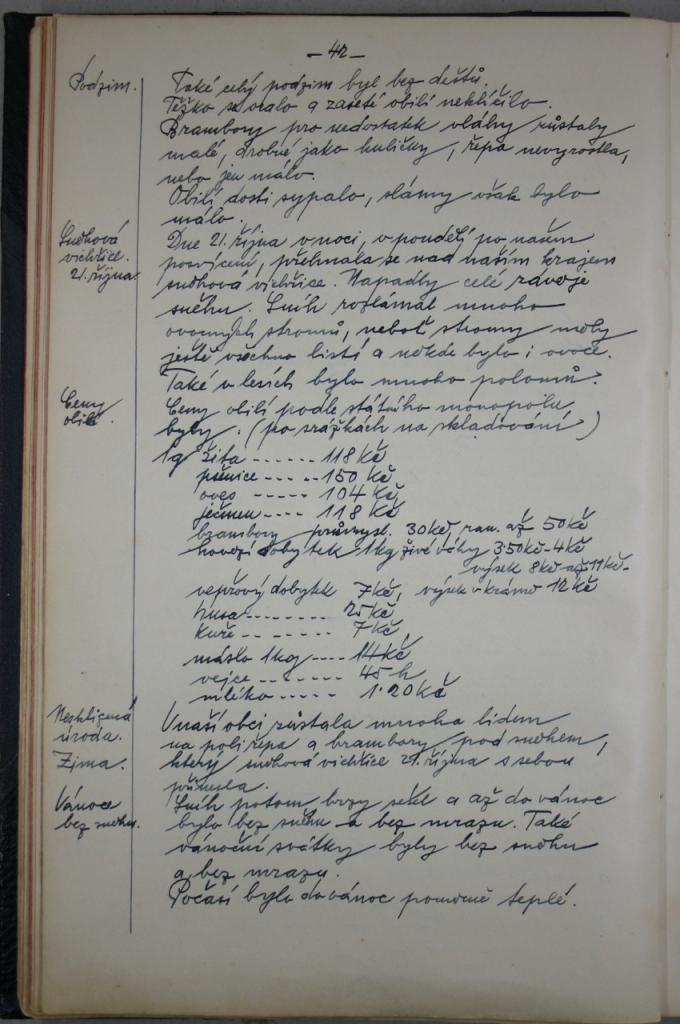 - 42 -
Podzim.
Také celý podzim byl bez deštů.
Těžko se oralo a zaseté obilí neklíčilo.
Brambory pro nedostatek vláhy zůstaly
malé, drobné jako kuličky, řepa nevyrostla,
nebo jen málo.
Obilí dosti sypalo, slámy však bylo
málo.
Sněhová
vichřice.
21. října.
Dne 21. října v noci, v pondělí po našem
posvícení, přehnala se nad naším krajem
sněhová vichřice. Napadly celé závěje
sněhu. Sníh rozlámal mnoho
ovocných stromů, neboť stromy měly
ještě všechno listí a někde bylo i ovoce.
Také v lesích bylo mnoho polomů.
Ceny
obilí.
Ceny obilí podle státního monopolu
byly: (po srážkách na skladování)
1q žita ------- 118 Kč
pšenice ----- 150 Kč
oves ----- 104 Kč
ječmen ---- 118 Kč
brambory průmysl. 30 Kč, ran. až 50 Kč
hovězí dobytek 1kg živé váhy 3.50 Kč - 4 Kč
výsek 8 Kč až 11 Kč.
vepřový dobytek 7 Kč, výsek v krámě 12 Kč
husa -------- 25 Kč
kuře -------- 7 Kč
máslo 1kg ---- 14 Kč
vejce ------- 45 h
mléko ----- 1.20 Kč
Nesklizená
úroda.
V naší obci zůstala mnoha lidem
na poli řepa a brambory pod sněhem,
Zima.
který sněhová vichřice 21. října s sebou
přinesla.
Vánoce
bez sněhu.
Sníh potom brzy sešel a až do vánoc
bylo bez sněhu a bez mrazu. Také
vánoční svátky byly bez sněhu
a bez mrazu.
Počasí bylo do vánoc poměrně teplé.